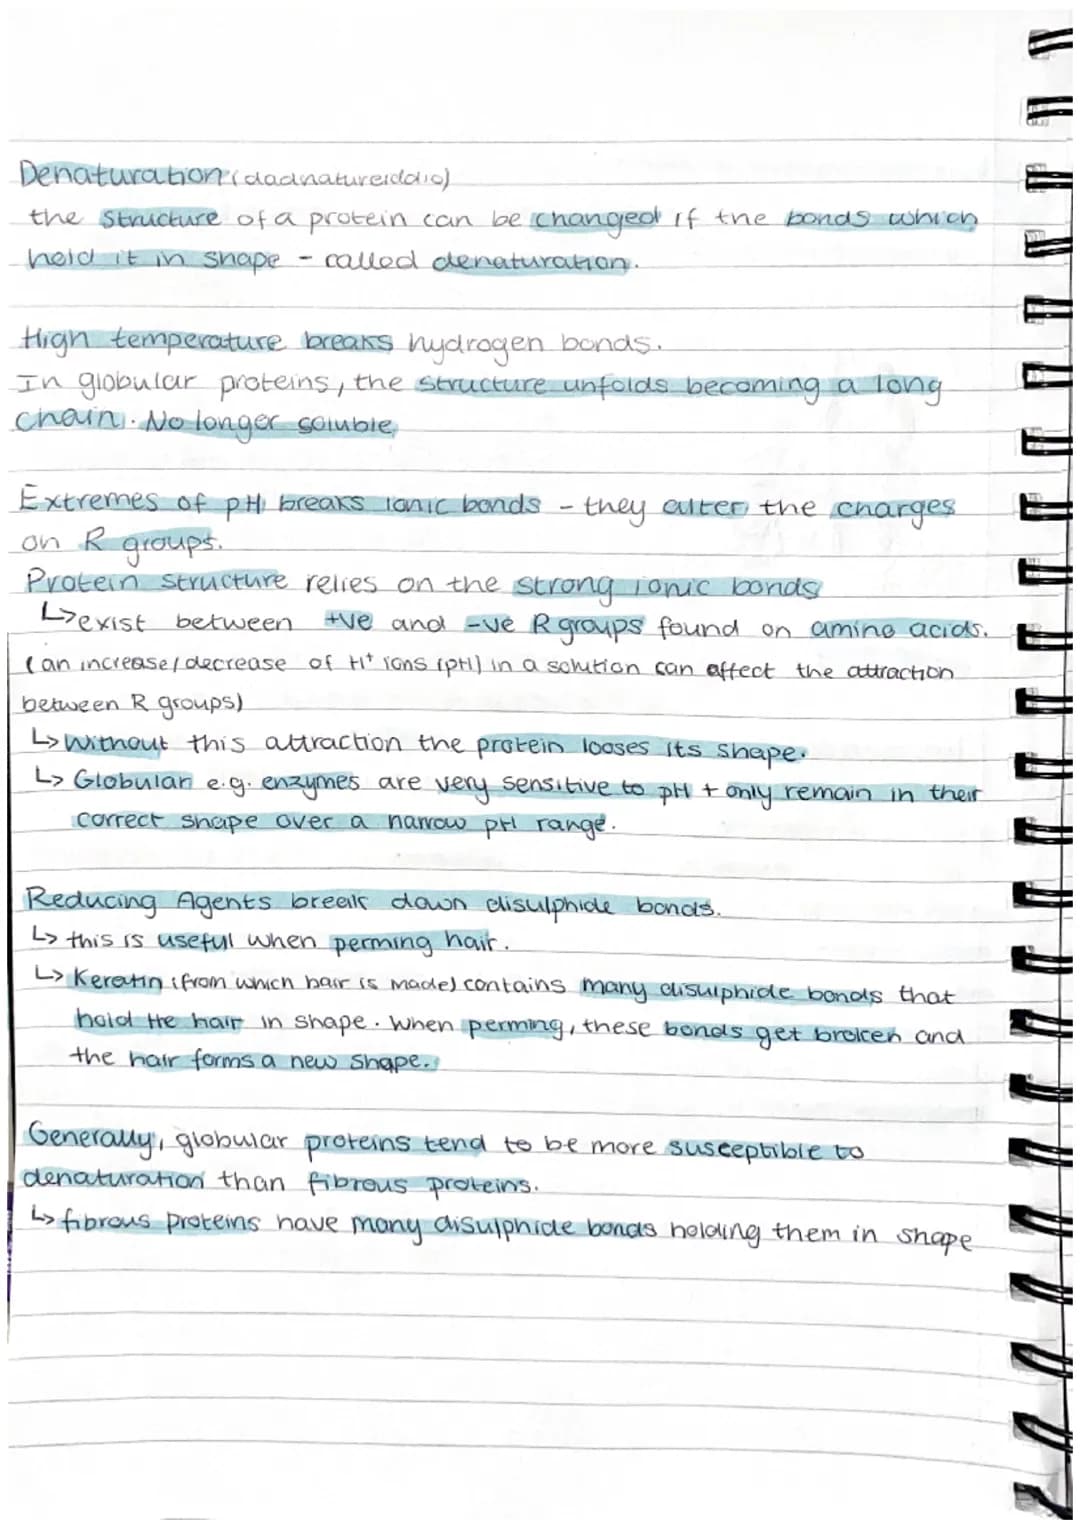 Denaturation (dadnatureiddio)
the structure of a protein can be changed if the bonds which
hold it in shape - called denaturation.
High temperature breaks hydrogen bonds.
In globular proteins, the structure unfolds becoming a long
chain. No longer soluble
Extremes of pH breaks ionic bonds - they alter the charges
on R groups.
Protein structure relies on the strong ionic bonds
↳ exist between +ve and -ve R groups found on amino acids.
(an increase/decrease of H⁺ ions (pH) in a solution can affect the attraction
between R groups)
↳ Without this attraction the protein looses its shape.
↳ Globular e.g. enzymes are very sensitive to pH + only remain in their
correct shape over a narrow pH range.
Reducing Agents break down disulphide bonds.
↳ this is useful when perming hair.
↳ Keratin (from which hair is made) contains many disulphide bonds that
hold the hair in shape. When perming, these bonds get broken and
the hair forms a new shape.
Generally, globular proteins tend to be more susceptible to
denaturation than fibrous proteins.
↳ fibrous proteins have many disulphide bonds holding them in shape